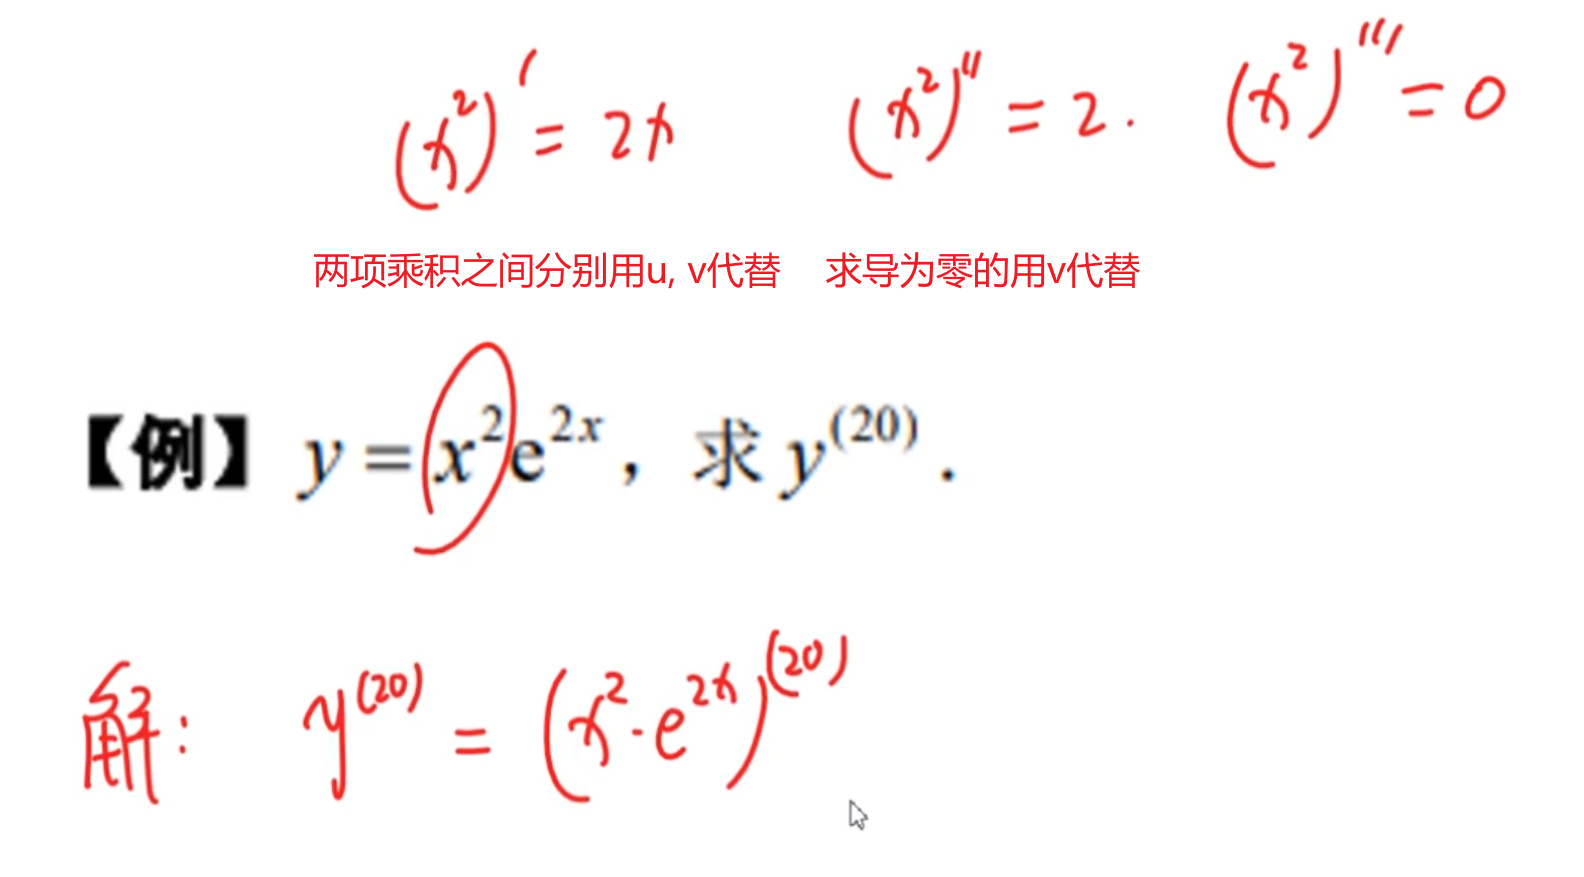 (x²)′ = 2x (x²)″ = 2. (x²)‴ = 0
两项乘积之间分别用u, v代替 求导为零的用v代替
【例】 y = x²e²ˣ , 求 y⁽²⁰⁾ .
解: y⁽²⁰⁾ = (x²·e²ˣ)⁽²⁰⁾